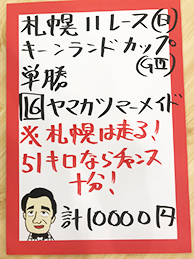 札幌11レース(日)
キーンランドカップ
(GⅢ)
単勝
16ヤマカツマーメイド
※札幌は走る!
51キロならチャンス
十分!
計10000円